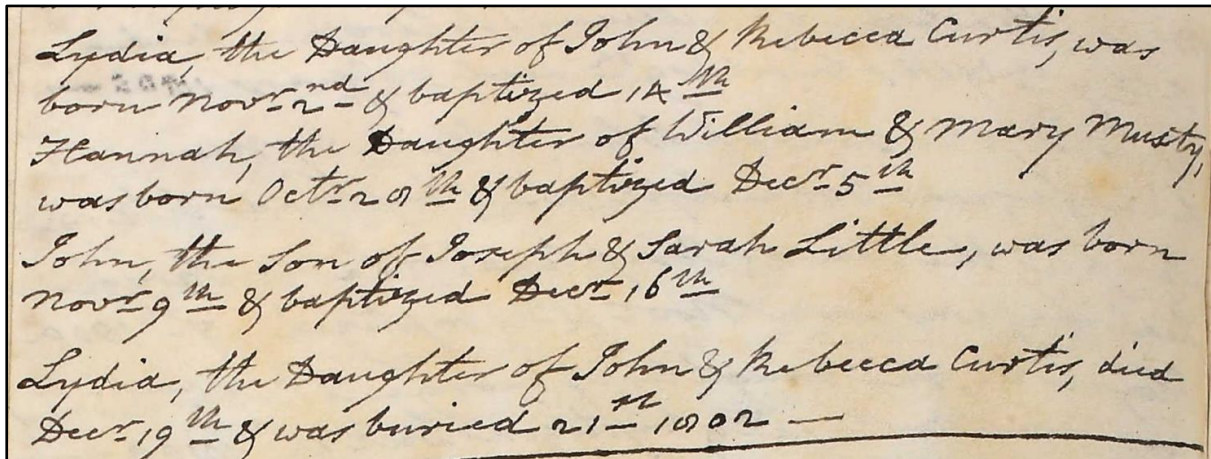 Lydia, the Daughter of John & Rebecca Curtis, was
born Novr. 2nd & baptized 14th
Hannah, the Daughter of William & Mary Musty,
was born Octr. 28th & baptized Decr. 5th
John, the Son of Joseph & Sarah Little, was born
Novr. 9th & baptized Decr. 16th
Lydia, the Daughter of John & Rebecca Curtis, died
Decr. 19th & was buried 21st 1802 —